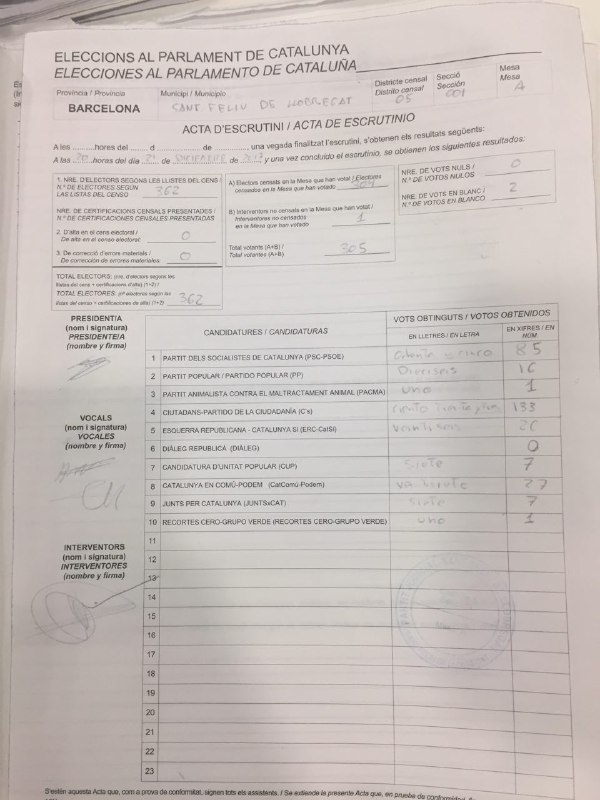 ELECCIONS AL PARLAMENT DE CATALUNYA
ELECCIONES AL PARLAMENTO DE CATALUÑA
Província / Provincia
BARCELONA
Municipi / Municipio
SANT FELIU DE LLOBREGAT
Districte censal
Distrito censal
05
Secció
Sección
001
Mesa
Mesa
A
ACTA D'ESCRUTINI / ACTA DE ESCRUTINIO
A les ......horas del ...... d ...... de ......, una vegada finalitzat l'escrutini, s'obtenen els resultats següents:
A las 20 horas del día 21 de DICIEMBRE de 2017 y una vez concluido el escrutinio, se obtienen los siguientes resultados:
1. NRE. D'ELECTORS SEGONS LES LLISTES DEL CENS /
N.º DE ELECTORES SEGÚN
LAS LISTAS DEL CENSO
362
NRE. DE CERTIFICACIONS CENSALS PRESENTADES /
N.º DE CERTIFICACIONES CENSALES PRESENTADAS
2. D'alta en el cens electoral /
De alta en el censo electoral:
0
3. De correcció d'errors materials /
De corrección de errores materiales:
0
TOTAL ELECTORS: (nre. d'electors segons les
llistes del cens + certificacions d'alta) (1+2) /
TOTAL ELECTORES: (nº electores según las
listas del censo + certificaciones de alta) (1+2)
362
A) Electors censats en la Mesa que han votat / Electores
censados en la Mesa que han votado
304
B) Interventors no censats en la Mesa que han votat /
Interventores no censados
en la Mesa que han votado
1
Total votants (A+B) /
Total votantes (A+B)
305
NRE. DE VOTS NULS /
N.º DE VOTOS NULOS
0
NRE. DE VOTS EN BLANC /
N.º DE VOTOS EN BLANCO
2
PRESIDENT/A
(nom i signatura)
PRESIDENTE/A
(nombre y firma)
VOCALS
(nom i signatura)
VOCALES
(nombre y firma)
INTERVENTORS
(nom i signatura)
INTERVENTORES
(nombre y firma)
CANDIDATURES / CANDIDATURAS
VOTS OBTINGUTS / VOTOS OBTENIDOS
EN LLETRES / EN LETRA
EN XIFRES / EN NÚM.
1 PARTIT DELS SOCIALISTES DE CATALUNYA (PSC-PSOE) 85
2 PARTIT POPULAR / PARTIDO POPULAR (PP) Dieciseis 16
3 PARTIT ANIMALISTA CONTRA EL MALTRACTAMENT ANIMAL (PACMA) uno 1
4 CIUTADANS-PARTIDO DE LA CIUDADANÍA (C's) 133
5 ESQUERRA REPUBLICANA - CATALUNYA SÍ (ERC-CatSí) 26
6 DIÀLEG REPUBLICÀ (DIÀLEG) 0
7 CANDIDATURA D'UNITAT POPULAR (CUP) Siete 7
8 CATALUNYA EN COMÚ-PODEM (CatComú-Podem) 27
9 JUNTS PER CATALUNYA (JUNTSxCAT) Siete 7
10 RECORTES CERO-GRUPO VERDE (RECORTES CERO-GRUPO VERDE) uno 1
11
12
13
14
15
16
17
18
19
20
21
22
23
S'estén aquesta Acta que, com a prova de conformitat, signen tots els assistents. / Se extiende la presente Acta que, en prueba de conformidad,